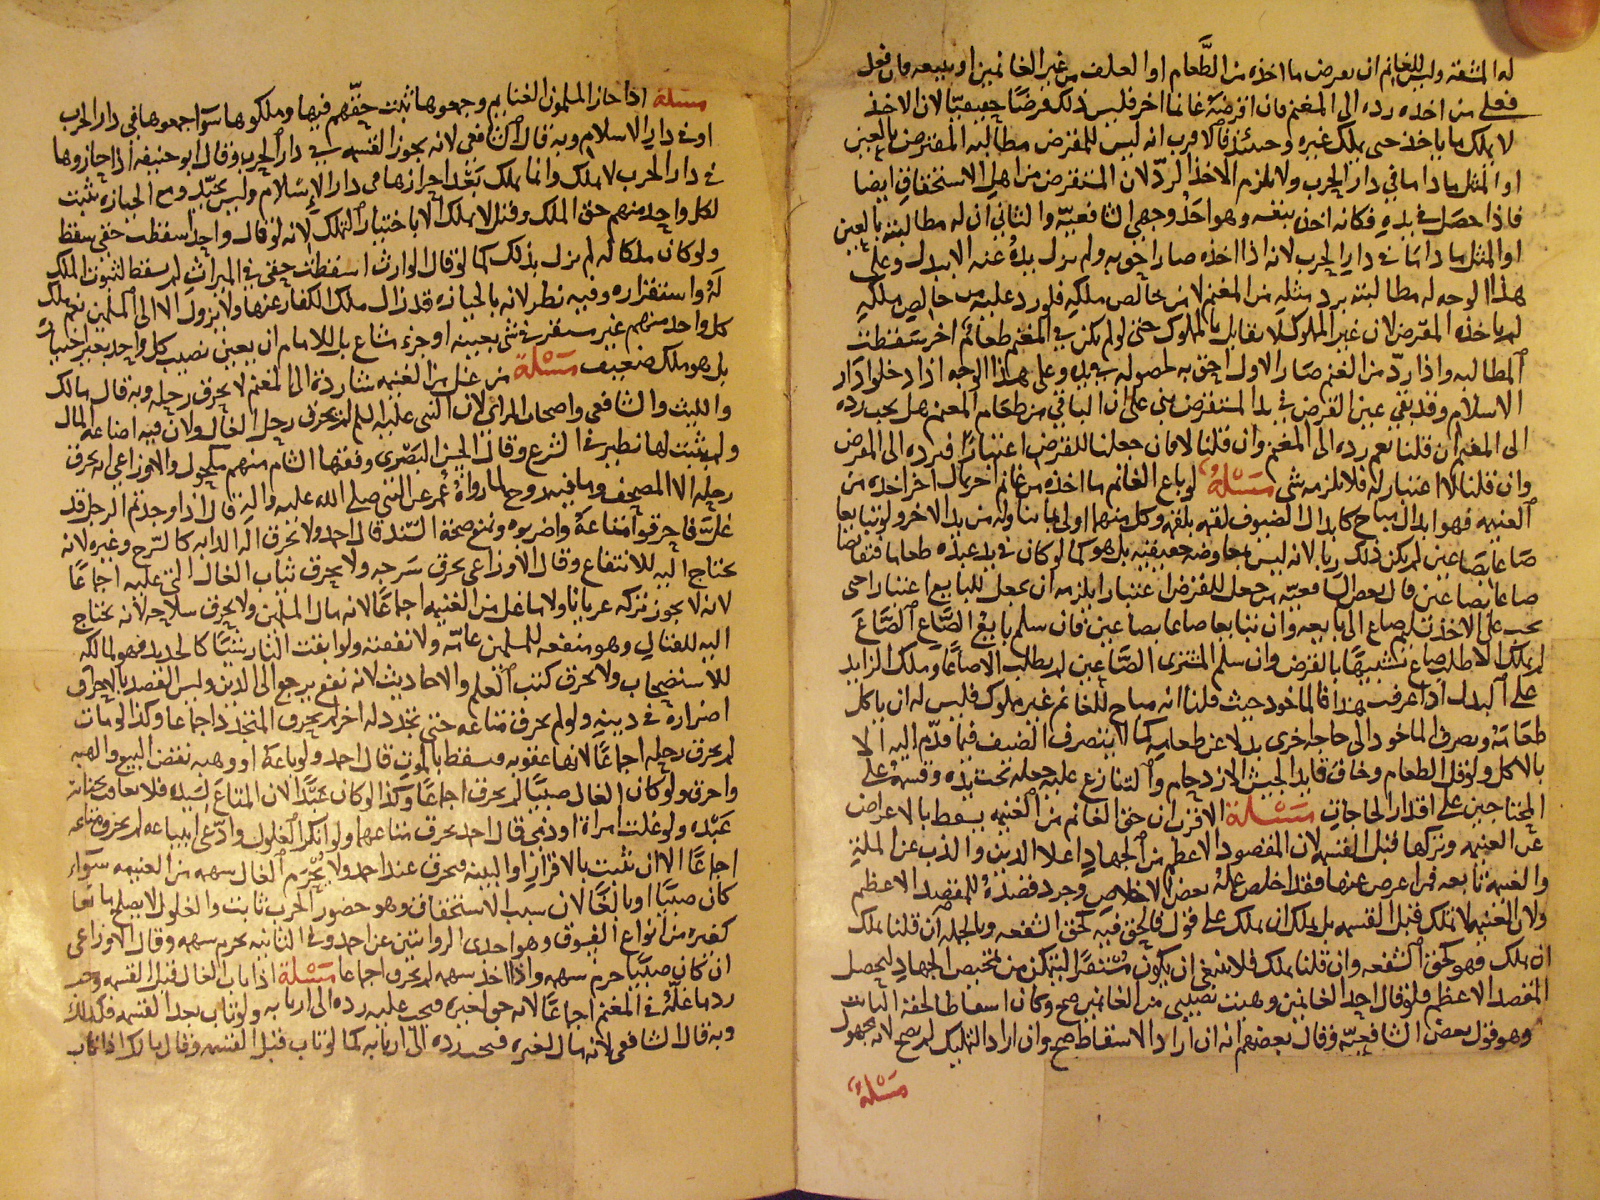 له المشقه وليس للغانم ان يقرض ما اخذه من الطَّعام او العلف من غير الغانمين او يبيعه فان فعل
فعلى من اخذه رده الى المغنم فان اقرضه غانما اخر فليس ذلك قرضًا حقيقيّا لان الاخذ
لا يملك ما ياخذ حتى يملك غيره وحينئذ فالاقرب انه ليس للمقرض مطالبه المقترض بالعين
او المثل ما داما في دار الحرب ولا يلزم الاخذ الردّ لان المستقرض من اهل الاستحقاق ايضا
فاذا حصل في يده فكانه اخذه بنفسه وهو احَدُ وجهي الشافعيّه والثاني ان له مطالبته بالعين
او المثل ما داما في دار الحرب لانه اذا اخذه صار احق به ولم تزل يدُه عنه الا ببدل وعلى
هذا الوجه له مطالبته برد مثله من المغنم لا من خالص ملكه فلو رد عليه من خالص ملكِه
لم ياخذه المقرض لان غير المملوك لا يقابل بالمملوك حتى لو لم يكن في المغنم طعام اخر سقطت
المطالبه واذا ردّ من المغنم صار الاول احق به لحصوله في يده وعلى هذا الوجه اذا دخلوا دار
الاسلام وقد بقي عين القرض في يد المستقرض بني على ان الباقي من طعام المغنم هل يجب رده
الى المغنم ان قلنا نعم رده الى المغنم وان قلنا لا فان جعلنا للقرض اعتبارًا فيرده الى المقرض
وان قلنا لا اعتبار له فلا يلزمه شي مَسْئلة لو باع الغانم ما اخذه من غانم اخر بمال اخر اخذه من
الغنيمه فهو ابدال مباح كابدال الضيوف لقمه بلقمه وكل منهما اولى بما تناوله من يد الاخر ولو تبايعا
صاعًا بصَاعين لم يكن ذلك ربا لانه ليس بمعاوضه حقيقيه بل هو كما لو كان في يد عبده طعاما فتقابضا
صاعًا بصاعين قال بعض الشافعيّه من جعل للقرض اعتبارا يلزمه ان يجعل للبايع اعتبارا حتى
يجب على الاخذ تسليم صاع الى بايعه وان تبايعا صاعا بصاعين فان سلم بايع الصَّاع الصَّاعَ
لم يملك الا طلب صاع تشبيهًا بالقرض وان سلم المشتري الصَّاعين لم يطلب الا صاعًا وملك الزايد
على البدل اذا عرفت هذا فالماخود حيث قلنا انه مباح للغانم غير مملوك فليس له ان ياكل
طعَامَهُ ويصرف الماخود الى حاجه اخرى بدلا عن طعامِه كما لا يتصرف الضيف فيما قدّم اليه الا
بالاكل ولو قل الطعام وخاف قايد الجيش الازدحام والتنازع عليه جعله تحت يده وقسمه على
المحتاجين على اقدار الحاجات مَسْئلة الاقرب ان حق الغانم من الغنيمه يسقط بالاعراض
عن الغنيمه وتركها قبل القسمه لان المقصود الاعظم من الجهاد اعلا الدين والذب عن الملّهِ
والغنيمه تابعه فمن اعرض عنها فقد اخلص عمله بعض الاخلاص وجرد قصْدَهُ للمقصد الاعظم
ولان الغنيمه لا تملك قبل القسمه بل يملك ان يملك على قول فالحق فيه كحق الشفعه وبالجمله ان قلنا يملك
ان يملك فهو كحق الشفعه وان قلنا يملك فلا ينبغي ان يكون مُسْتقرًا ليتمكن من تمحيص الجهاد ليحصل
المقصد الاعظم فلو قال احد الغانمين وهبت نصيبي من الغانمين صح وكان اسقاطا لحقه الثابت
وهو قول بعض الشافعيّه وقال بعضهم انه ان اراد الاسقاط صح وان اراد التمليك لم يصح لانه مجهول
مَسْئلة
مسئلة اذا حاز المسلمون الغنايم وجمعوها ثبت حقّهم فيها وملكوها سوا جمعوها في دار الحرب
او في دار الاسلام وبه قال الشافعي لانه يجوز القسمه في دار الحرب وقال ابو حنيفه اذا حازوها
في دار الحرب لا يملك وانما يملك بَعْد احرازها في دار الاسْلام وليس بجيّد ومع الحيازه يثبت
لكل واحد منهم حق الملك وقيل لا يملك الا باختيار التملك لانه لو قال واحد اسقطت حقي سقط
ولو كان ملكا له لم يزل بذلك كما لو قال الوارث اسقطت حقي في الميراث لم يسقط لثبوت الملك
لهُ واستقراره وفيه نظر لانه بالحيازه قد زال ملك الكفار عنها ولا يزول الا الى المسلمين نعم ملك
كل واحد منهم غير مستقر في شي بعينه او جزء مشاع بل للامام ان يعين نصيب كل واحد بغير اختيارٍ
بل هو ملك ضعيف مَسْئلة من غل من الغنيمه شيا رده الى المغنم لا يحرق رحله وبه قال مالك
والليث والشافعي واصحاب الراى لان النبي عليه السلم لم يحرق رحل الغال ولان فيه اضاعه المال
ولم يثبت لها نظير في الشرع وقال الحسن البصْري وفقها الشام منهم مكحول والاوزاعي انه يحرق
رحله الا المصحف وما فيه روح لما رواهُ عُمر عن النبي صلى الله عليه واله قال اذا وجدتم الرجل قد
غلَّ فاحرقوا متاعهُ واضربوه ونمنع صحة السّند قال احمد ولا تحرق اله الدابه كالسّرج وغيره لانه
يحتاج اليه للانتفاع وقال الاوزاعي يحرق سَرجه ولا يحرق ثياب الغال التي عليه اجماعًا
لانه لا يجوز تركه عريانا ولا ما غل من الغنيمه اجماعًا لانه مال المسلمين ولا يحرق سلاحه لانه يحتاج
اليه للقتال وهو منفعه للمسلمين عامّه ولا نفقته ولو ابقت النار شيئًا كالحديد فهو لمالكه
للاستصْحاب ولا تحرق كتب العلم والاحاديث لانه نفع يرجع الى الدين وليس القصد بالاحراق
اضراره في دينِهِ ولو لم يحرق متاعه حتى تجدد له اخر لم يحرق المتجدد اجماعا وكذا لو مات
لم يحرق رحله اجماعًا لانها عقوبه فتسقط بالموت قال احمد ولو باعهُ او وهبه نقض البيع والهبه
واحرق ولو كان الغال صبيًا لم يحرق اجماعًا وكذا لو كان عَبْدًا لان المتاعَ لسيده فلا يعاقب بجنايه
عَبْده ولو غلت امراة او ذمي قال احمد يحرق متاعهما ولو انكر الغلول وادّعى ابتياعه لم يحرق متاعه
اجماعًا الا ان يثبت بالاقرار او البينه فيحرق عند احمد ولا يُحْرَم الغال سهمه من الغنيمه سَواء
كان صبيًا او بالغًا لان سبب الاستحقاق وهو حضور الحرب ثابت والغلول لا يصلح مانعًا
كغيره من انواع الفسوق وهو احدى الروايتين عن احمد وفي الثانيه يحرم سهمه وقال الاوزاعي
ان كان صبيّا حرم سهمه واذا اخذ سهمه لم يحرق اجماعا مَسْئلة اذا تاب الغال قبل القسمه وجب
رد ما غلَّهُ في المغنم اجماعًا لانه حق لغيره فيجب عليه رده الى اربابه ولو تاب بعد القسمه فكذلك
وبه قال الشافعي لانه مال لغيره فيجب رده الى اربابه كما لو تاب قبل القسمه وقال مالك اذا تاب